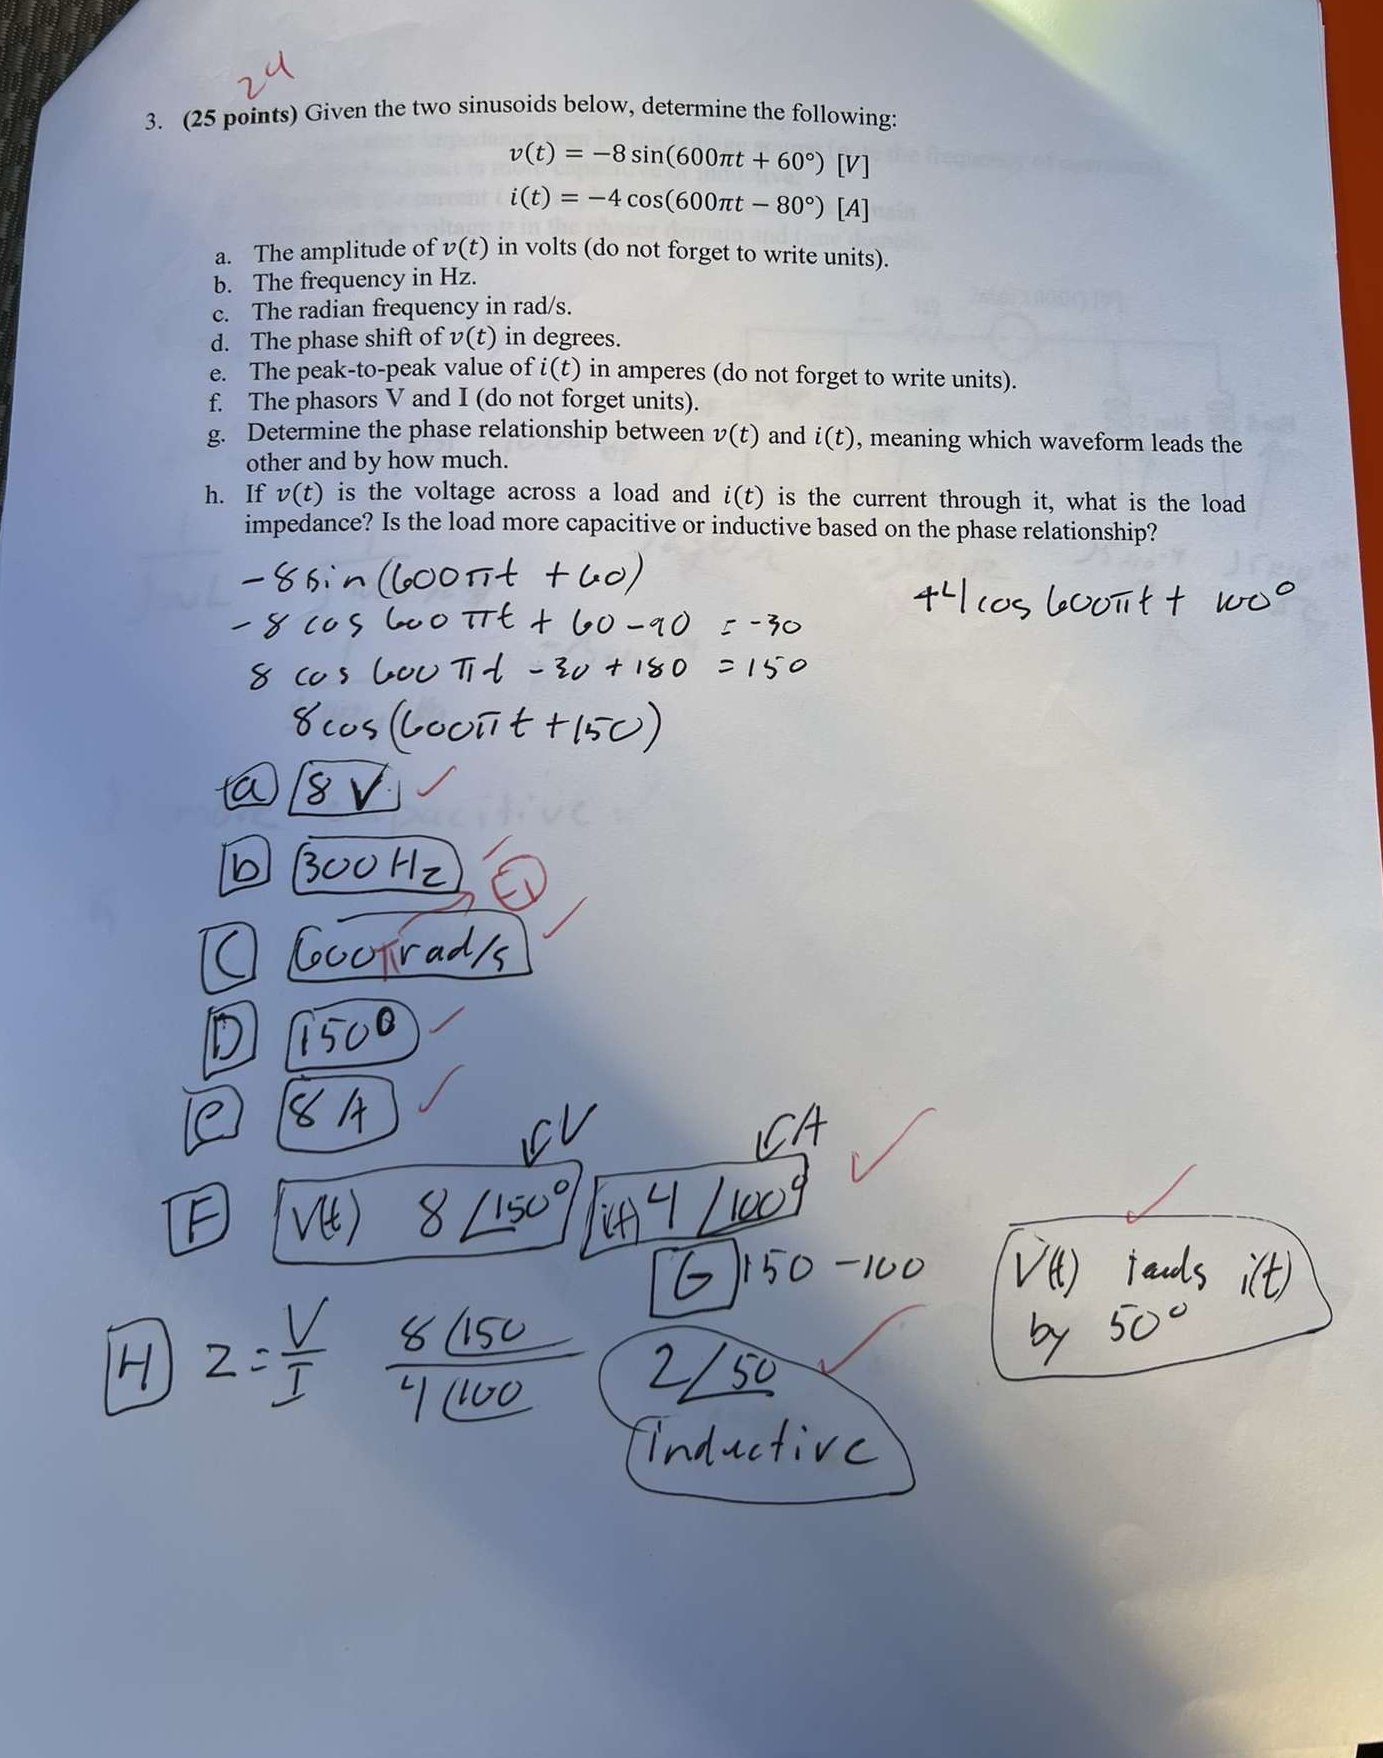 24
3. (25 points) Given the two sinusoids below, determine the following:
v(t) = −8 sin(600πt + 60°) [V]
i(t) = −4 cos(600πt − 80°) [A]
a. The amplitude of v(t) in volts (do not forget to write units).
b. The frequency in Hz.
c. The radian frequency in rad/s.
d. The phase shift of v(t) in degrees.
e. The peak-to-peak value of i(t) in amperes (do not forget to write units).
f. The phasors V and I (do not forget units).
g. Determine the phase relationship between v(t) and i(t), meaning which waveform leads the
other and by how much.
h. If v(t) is the voltage across a load and i(t) is the current through it, what is the load
impedance? Is the load more capacitive or inductive based on the phase relationship?
-8 sin (600πt + 60)
+4 cos 600πt + 100°
-8 cos 600πt + 60-90 = -30
8 cos 600πt -30 + 180 = 150
8 cos (600πt + 150)
a 8 V ✓
b 300 Hz ✓
C 600π rad/s ✓
D 150° ✓
e 8 A ✓
V A
F V(t) 8 /150° i(t) 4 /100° ✓
G 150 - 100 V(t) leads i(t)
by 50° ✓
H Z = V/I 8 /150 / 4 /100 2 /50 ✓
inductive